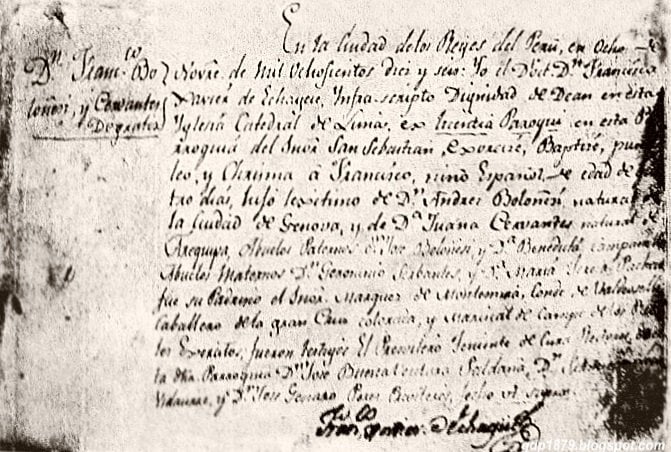 Dn. Franco. Bo
loñesi, y Cervantes
De gratia
En la Ciudad de los Reyes del Perú, en Ocho de
Novre. de Mil Ochosientos Diez y seis: Yo el Doct. Dn. Francisco
Xavier de Echague, Infra-scripto Dignidad de Dean en esta
Iglesia Catedral de Lima, ex Licentia Parroqui en esta Pa
rroquia del Snor San Sebastian, exorcisé, Baptisé, puse
oleo, y Chrisma á Francisco, niño Español de edad de
tro dias, hijo lexitimo de Dn. Andres Boloñesi natural de
la Ciudad de Genova, y de Da. Juana Cervantes natural de
Arequipa, Abuelos Paternos Dn. Jose Boloñesi, y Da. Benedicta Campana
Abuelos Maternos Dn. Geronimo Serbantes, y Da. Maria Pacheco
fue su Padrino el Snor. Marquez de Montemira, Conde de Valdemar
Caballero de la gran Cruz colorada, y Mariscal de Campo de los Rea
les Exercitos, fueron testigos El Presvitero Teniente de Cura Rectores, de
ta dha. Parroquia Dn. Jose Buenaventura Saldaña, Dn.
Vidaurre, y Dn. Jose Genaro Perez
Franco. Xavier de Echague
gdp1879.blogspot.com